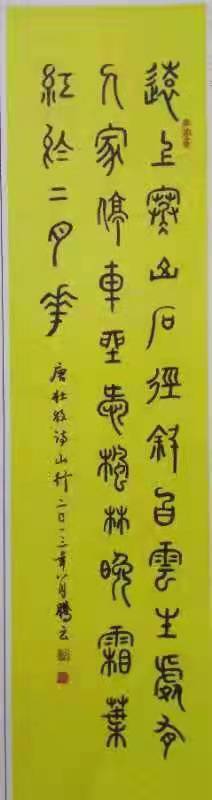 遠上寒山石徑斜白雲生處有
人家停車坐愛楓林晚霜葉
紅於二月花
唐杜牧詩山行二〇一三年八月云